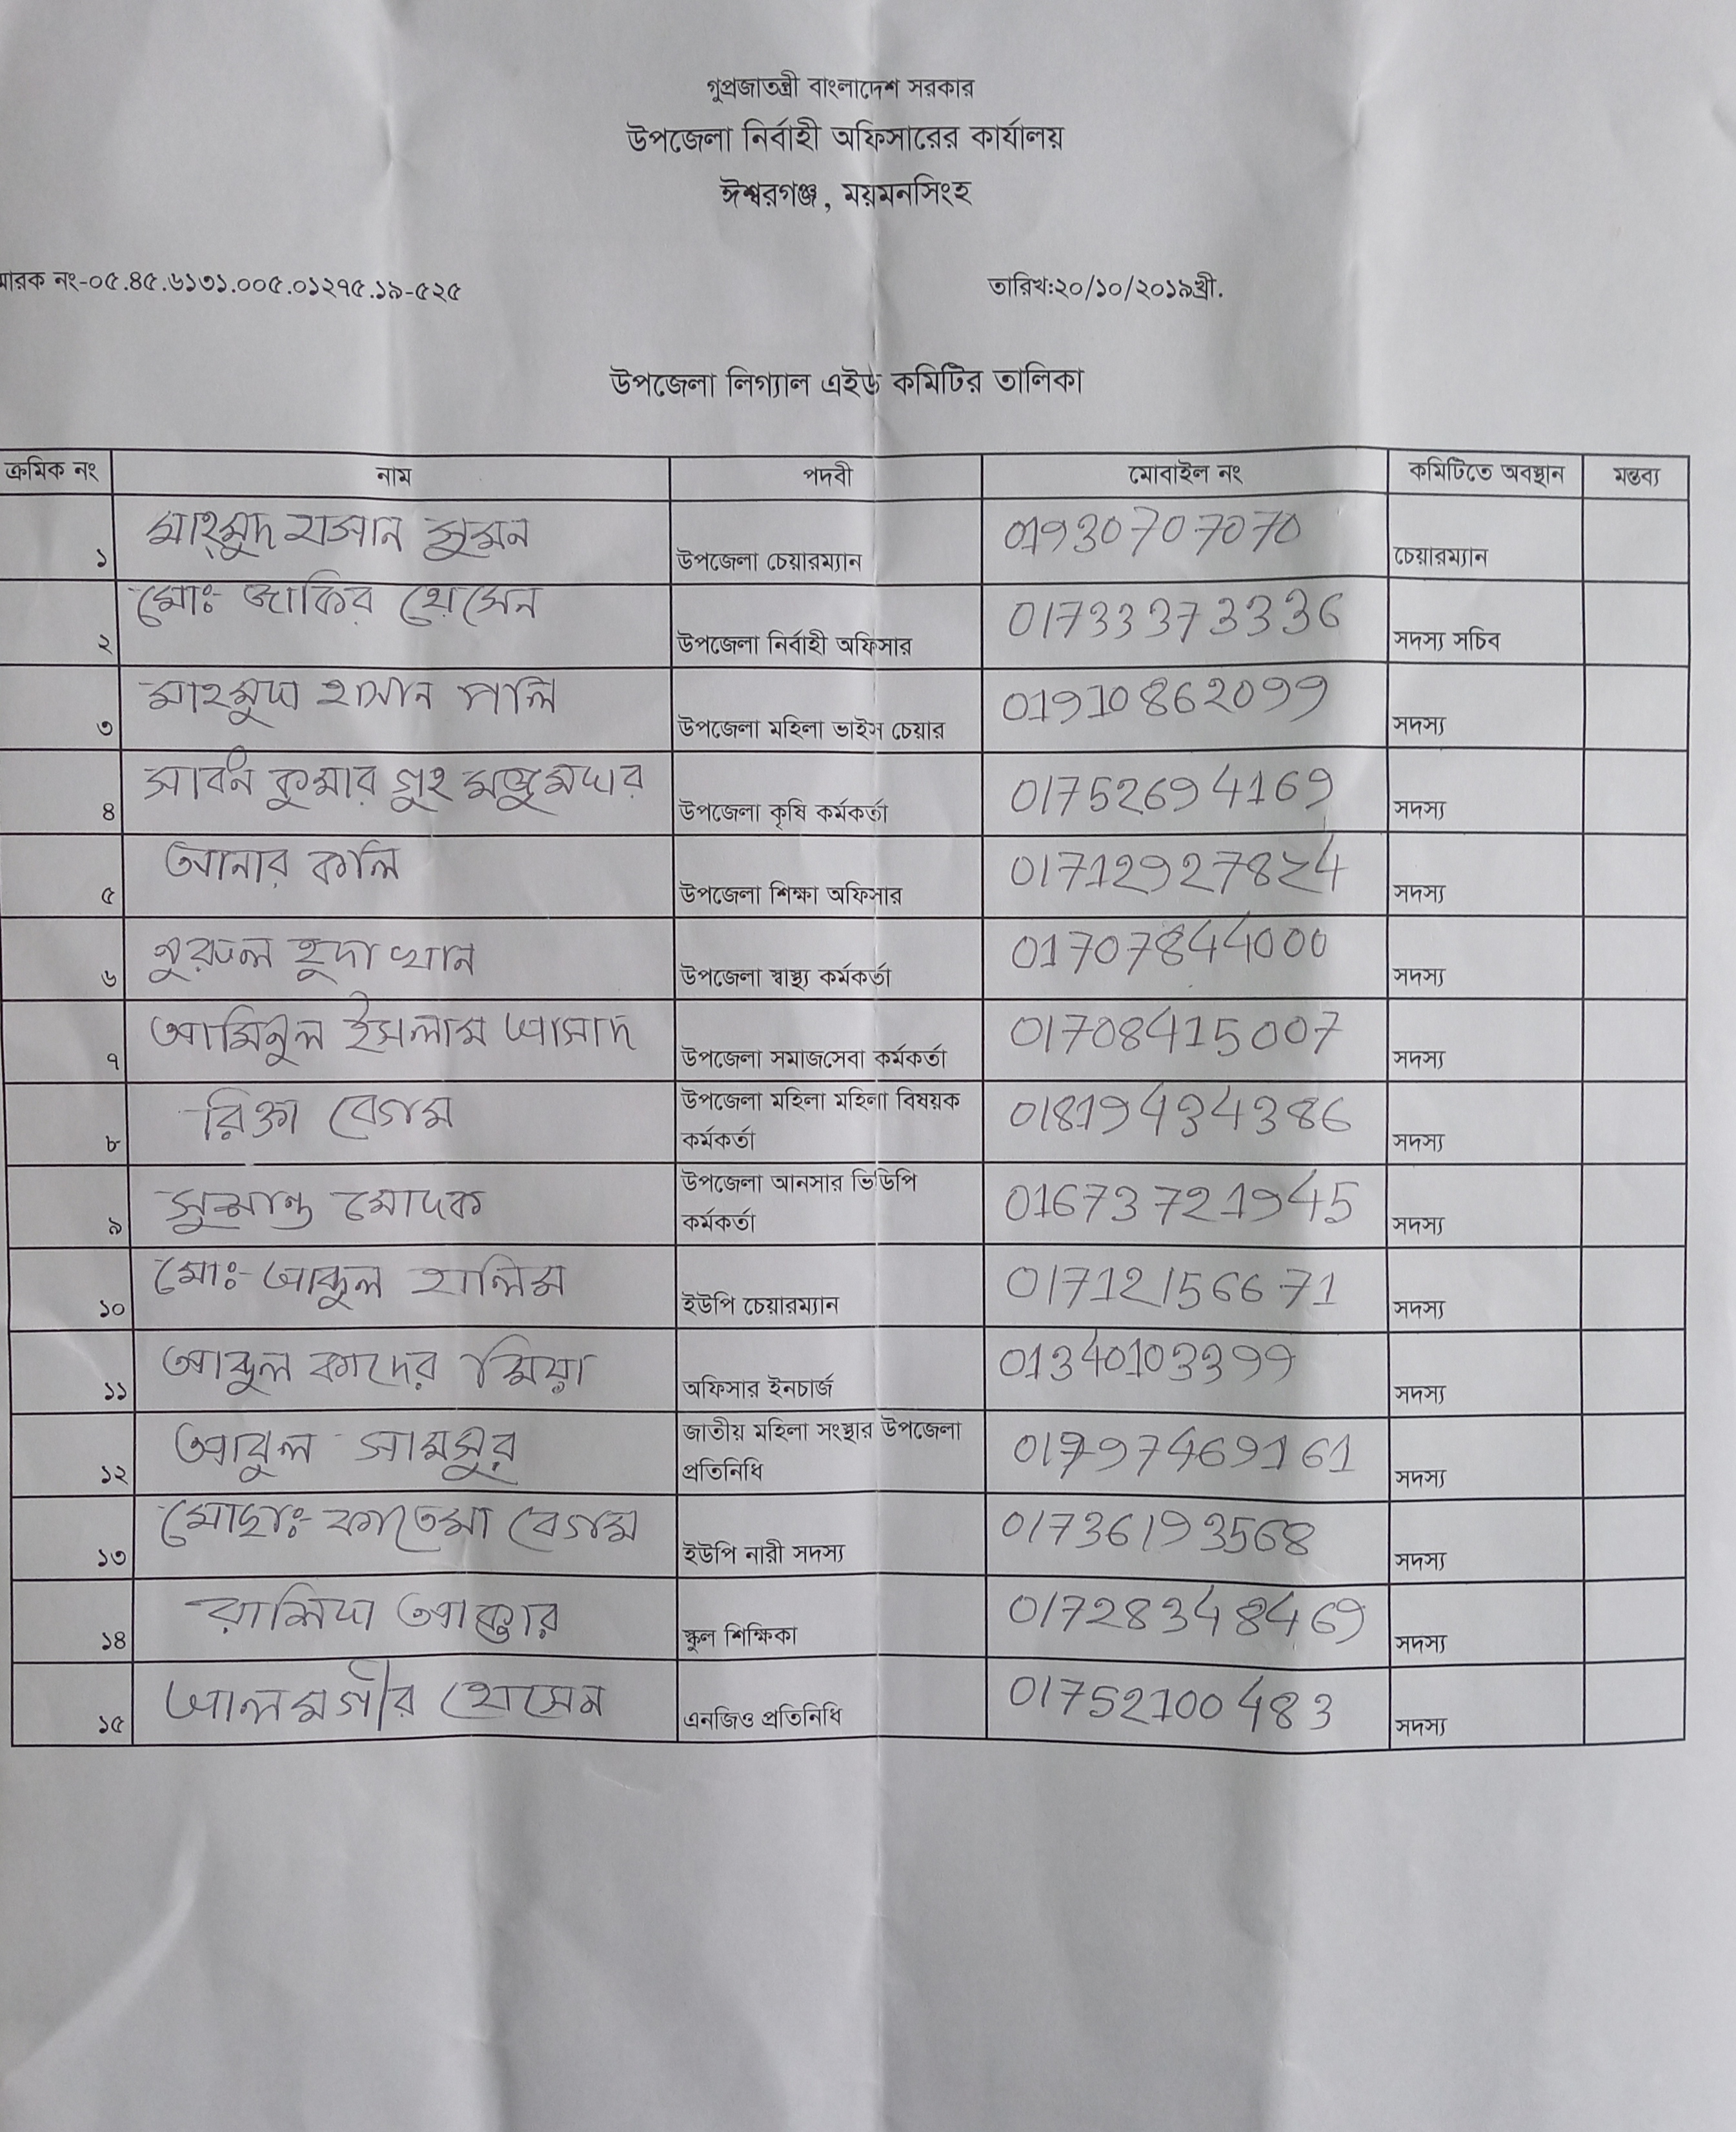 গুপ্রজাতন্ত্রী বাংলাদেশ সরকার
উপজেলা নির্বাহী অফিসারের কার্যালয়
ঈশ্বরগঞ্জ, ময়মনসিংহ
মারক নং-০৫.৪৫.৬১৩১.০০৫.০১২৭৫.১৯-৫২৫ তারিখ:২০/১০/২০১৯খ্রী.
উপজেলা লিগ্যাল এইড কমিটির তালিকা
ক্রমিক নং নাম পদবী মোবাইল নং কমিটিতে অবস্থান মন্তব্য
১ মাহমুদ হাসান সুমন উপজেলা চেয়ারম্যান 01930707070 চেয়ারম্যান
২ মোঃ জাকির হোসেন উপজেলা নির্বাহী অফিসার 01733373336 সদস্য সচিব
৩ মাহমুদা হাসান পলি উপজেলা মহিলা ভাইস চেয়ার 01910862099 সদস্য
৪ সাধন কুমার গুহ মজুমদার উপজেলা কৃষি কর্মকর্তা 01752694169 সদস্য
৫ আনার কলি উপজেলা শিক্ষা অফিসার 01712927824 সদস্য
৬ নুরুল হুদা খান উপজেলা স্বাস্থ্য কর্মকর্তা 01707844000 সদস্য
৭ আমিনুল ইসলাম আসাদ উপজেলা সমাজসেবা কর্মকর্তা 01708415007 সদস্য
৮ রিক্তা বেগম উপজেলা মহিলা মহিলা বিষয়ক কর্মকর্তা 01819434386 সদস্য
৯ সুশান্ত মোদক উপজেলা আনসার ভিডিপি কর্মকর্তা 01673721945 সদস্য
১০ মোঃ আব্দুল হালিম ইউপি চেয়ারম্যান 01712156671 সদস্য
১১ আব্দুল কাদের মিয়া অফিসার ইনচার্জ 01340103399 সদস্য
১২ আবুল জাতীয় মহিলা সংস্থার উপজেলা প্রতিনিধি 01797469161 সদস্য
১৩ মোছাঃ ফাতেমা বেগম ইউপি নারী সদস্য 01736193568 সদস্য
১৪ আক্তার স্কুল শিক্ষিকা 01728348469 সদস্য
১৫ আলমগীর হোসেন এনজিও প্রতিনিধি 01752100483 সদস্য